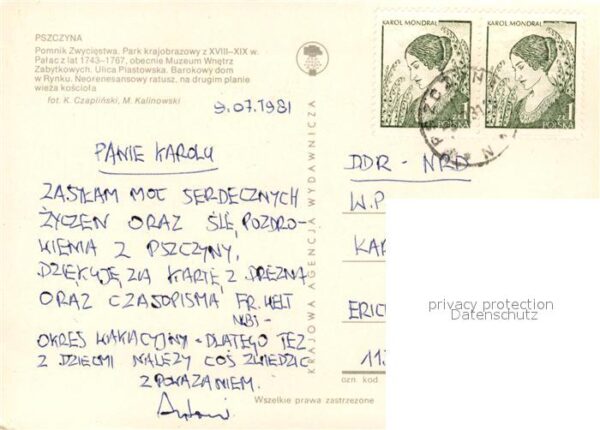 PSZCZYNA
Pomnik Zwycięstwa. Park krajobrazowy z XVIII–XIX w.
Pałac z lat 1743–1767, obecnie Muzeum Wnętrz
Zabytkowych. Ulica Piastowska. Barokowy dom
w Rynku. Neorenesansowy ratusz, na drugim planie
wieża kościoła
fot. K. Czapliński, M. Kalinowski
9.07.1981
PANIE KAROLU
ZASYŁAM MOC SERDECZNYCH
ŻYCZEN ORAZ ŚLĘ POZDRO-
WIENIA Z PSZCZYNY,
DZIĘKUJĘ ZA KARTĘ Z DREZNA
ORAZ CZASOPISMA FR. WELT
NBI-
OKRES WAKACYJNY - DLATEGO TEŻ
Z DZIEĆMI NALEŻY COŚ ZWIEDZIĆ
Z POWAŻANIEM.
KRAJOWA AGENCJA WYDAWNICZA
KAROL MONDRAL
KAROL MONDRAL
1
POLSKA
1
PSZCZYNA
DDR - NRD
W.P
KAR
ERIC
11
ozn kod
Wszelkie prawa zastrzeżone
privacy protection
Datenschutz